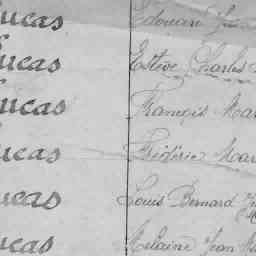 ucas Edouard
ucas Estève Charles
ucas François Mar
ucas Frédéric Mar
ucas Louis Bernard
ucas Melaine Jean Ma